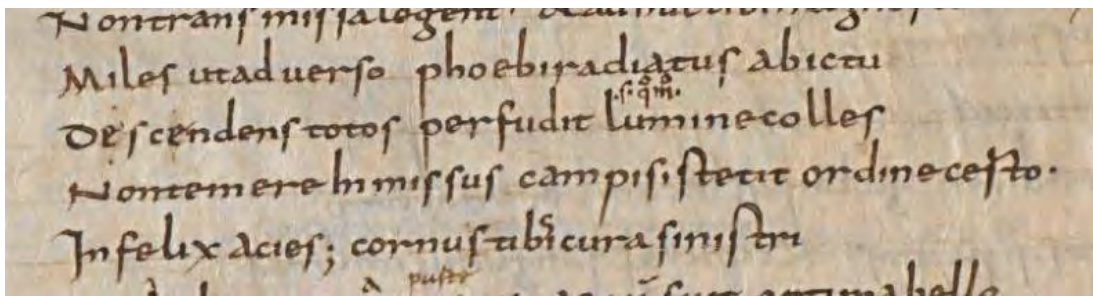 Non transmissa legent
Miles ut adverso phoebi radiatus ab ictu
.s. qm̊.
Descendens totos perfudit lumine colles
Non temere Inmissus campis. stetit ordine certo.
Infelix acies; cornus tibi cura sinistri
bello